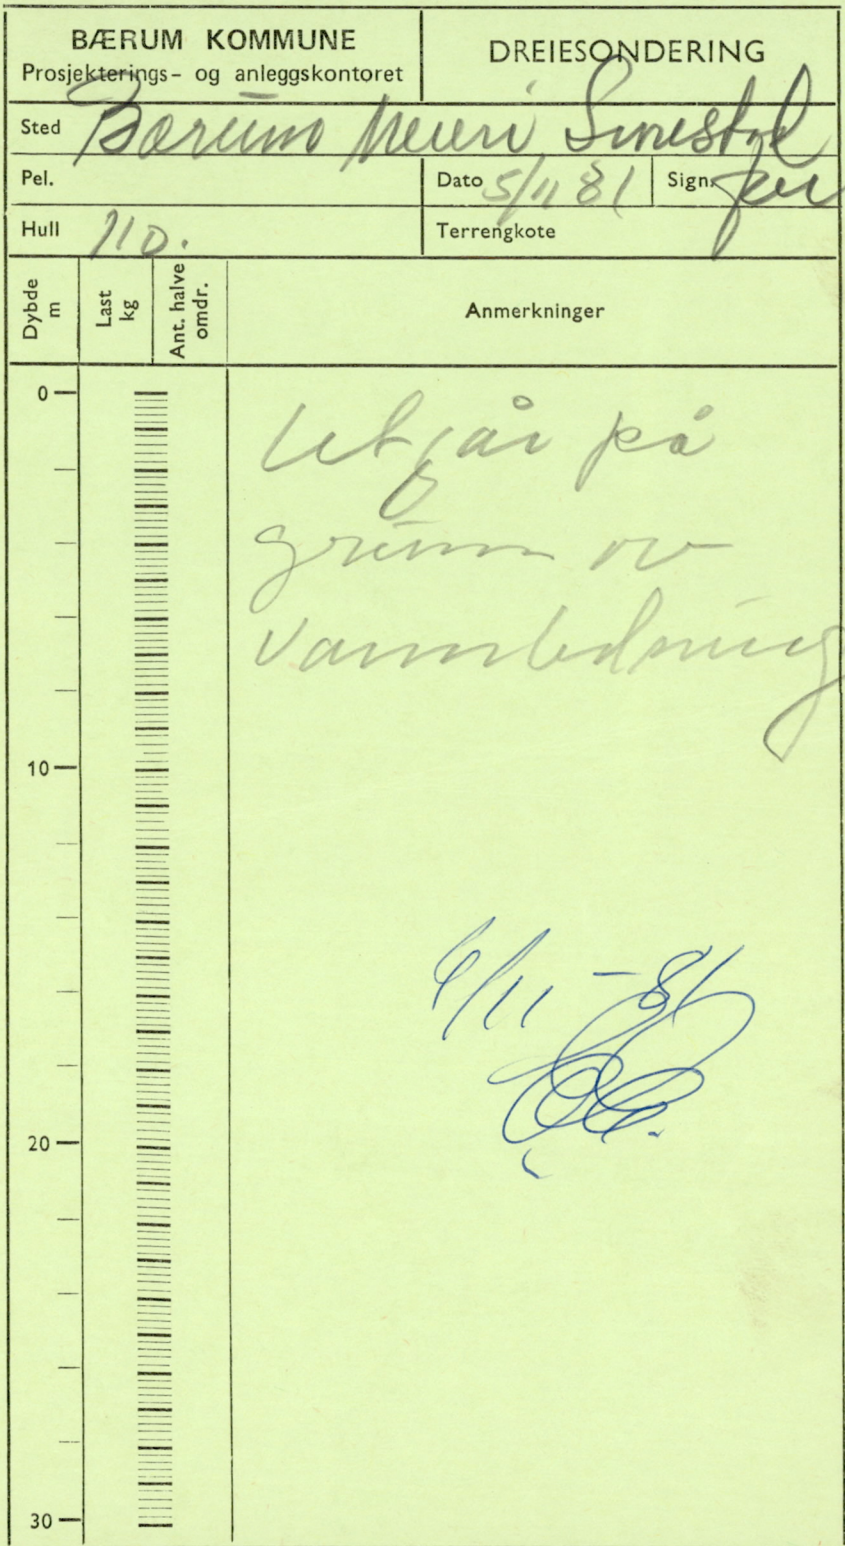 BÆRUM KOMMUNE
Prosjekterings- og anleggskontoret
DREIESONDERING
Sted Bærum Meieri
Pel.
Dato 5/11 81
Sign.
Hull 110.
Terrengkote
Dybde m
Last kg
Ant. halve omdr.
Anmerkninger
0
Utgår på
grunn av
vannledning
10
6/11 - 81
20
30